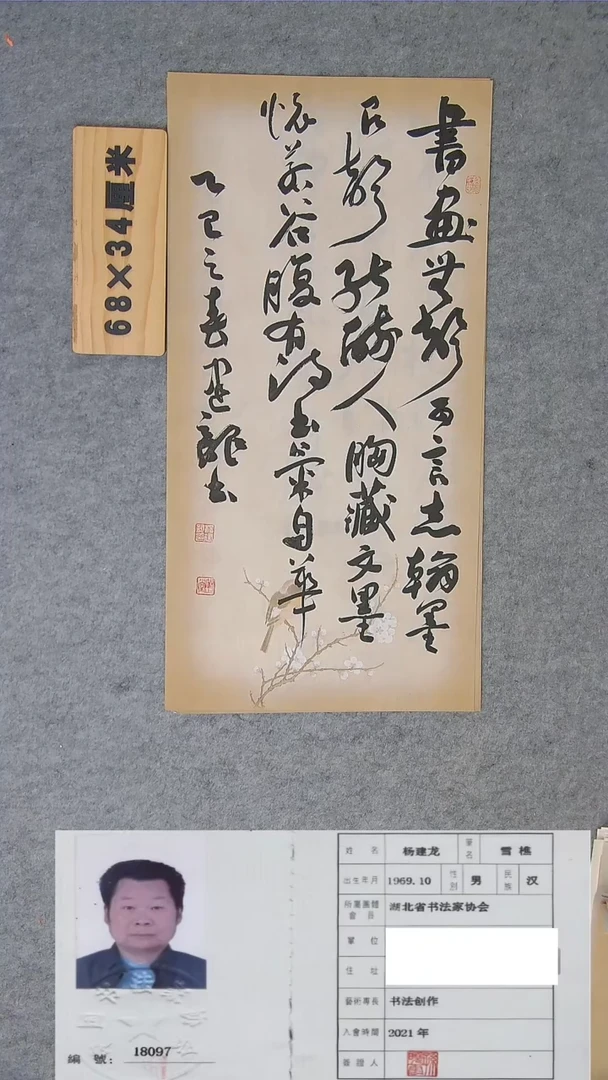 68×34厘米
書画無聲可言志翰墨
聲能醉人胸藏文墨
懷若谷腹有詩书氣自華
乙巳之春建龍书
姓名 杨建龙 筆名 雪樵
出生年月 1969.10 性別 男 民族 汉
所屬團體會員 湖北省书法家协会
單位
住址
藝術專長 书法创作
入會時間 2021年
簽證人
編號：18097